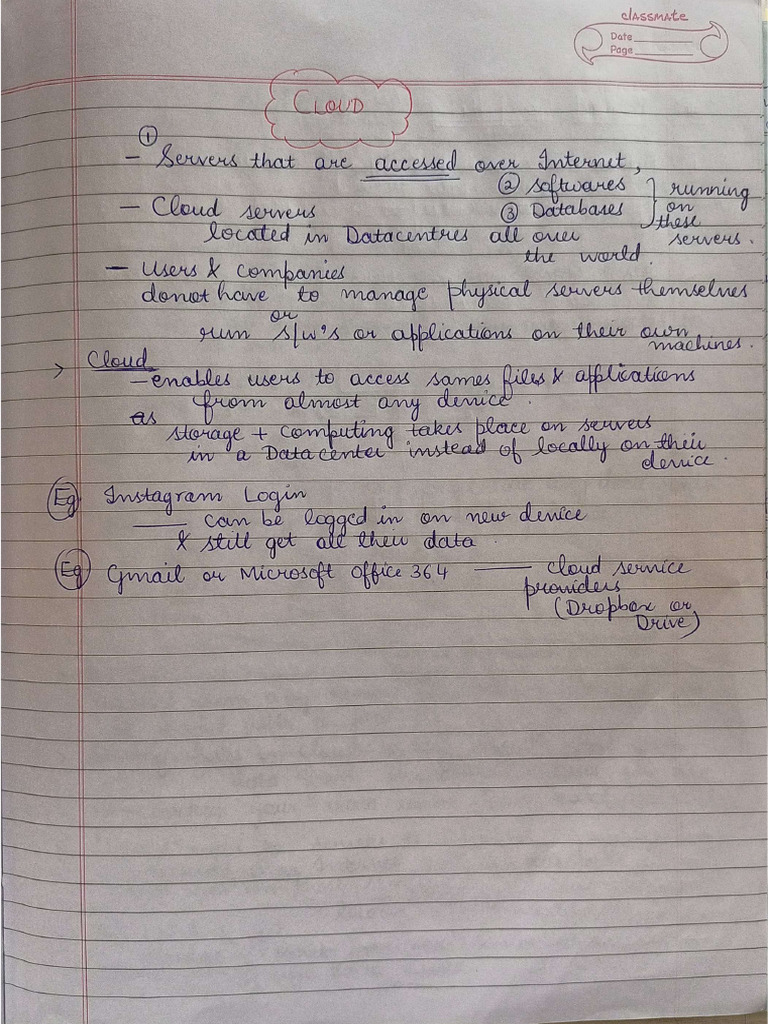 classmate
Date
Page
CLOUD
① – Servers that are accessed over Internet,
② softwares
③ Databases } running on these servers.
– Cloud servers
located in Datacentres all over
the world.
– Users & companies
donot have to manage physical servers themselves
or
run s/w's or applications on their own
machines.
> Cloud
– enables users to access sames files & applications
from almost any device.
as
storage + computing takes place on servers
in a Datacenter instead of locally on their
device.
Eg Instagram Login
— can be logged in on new device
& still get all their data.
Eg Gmail or Microsoft Office 364 — cloud service
providers
(Dropbox or
Drive)